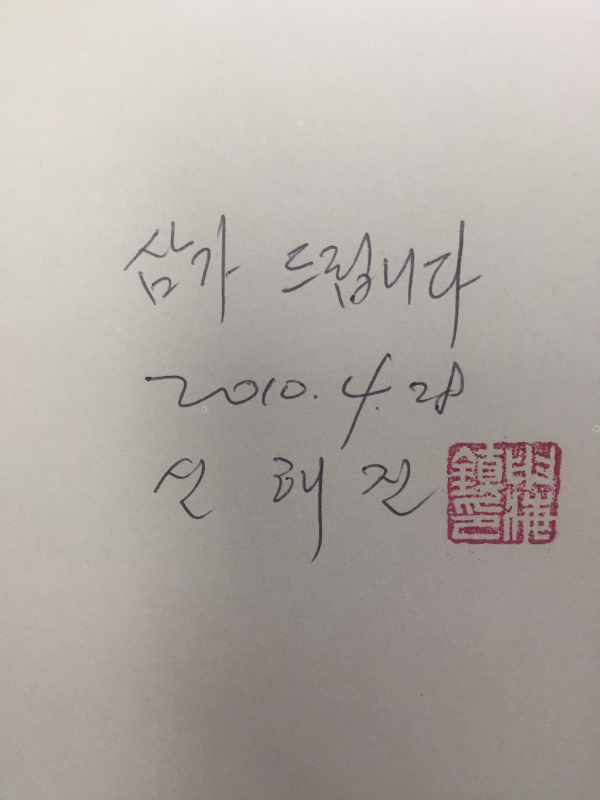 삼가 드립니다
2010. 4. 28
신 해 진
申海
鎭印